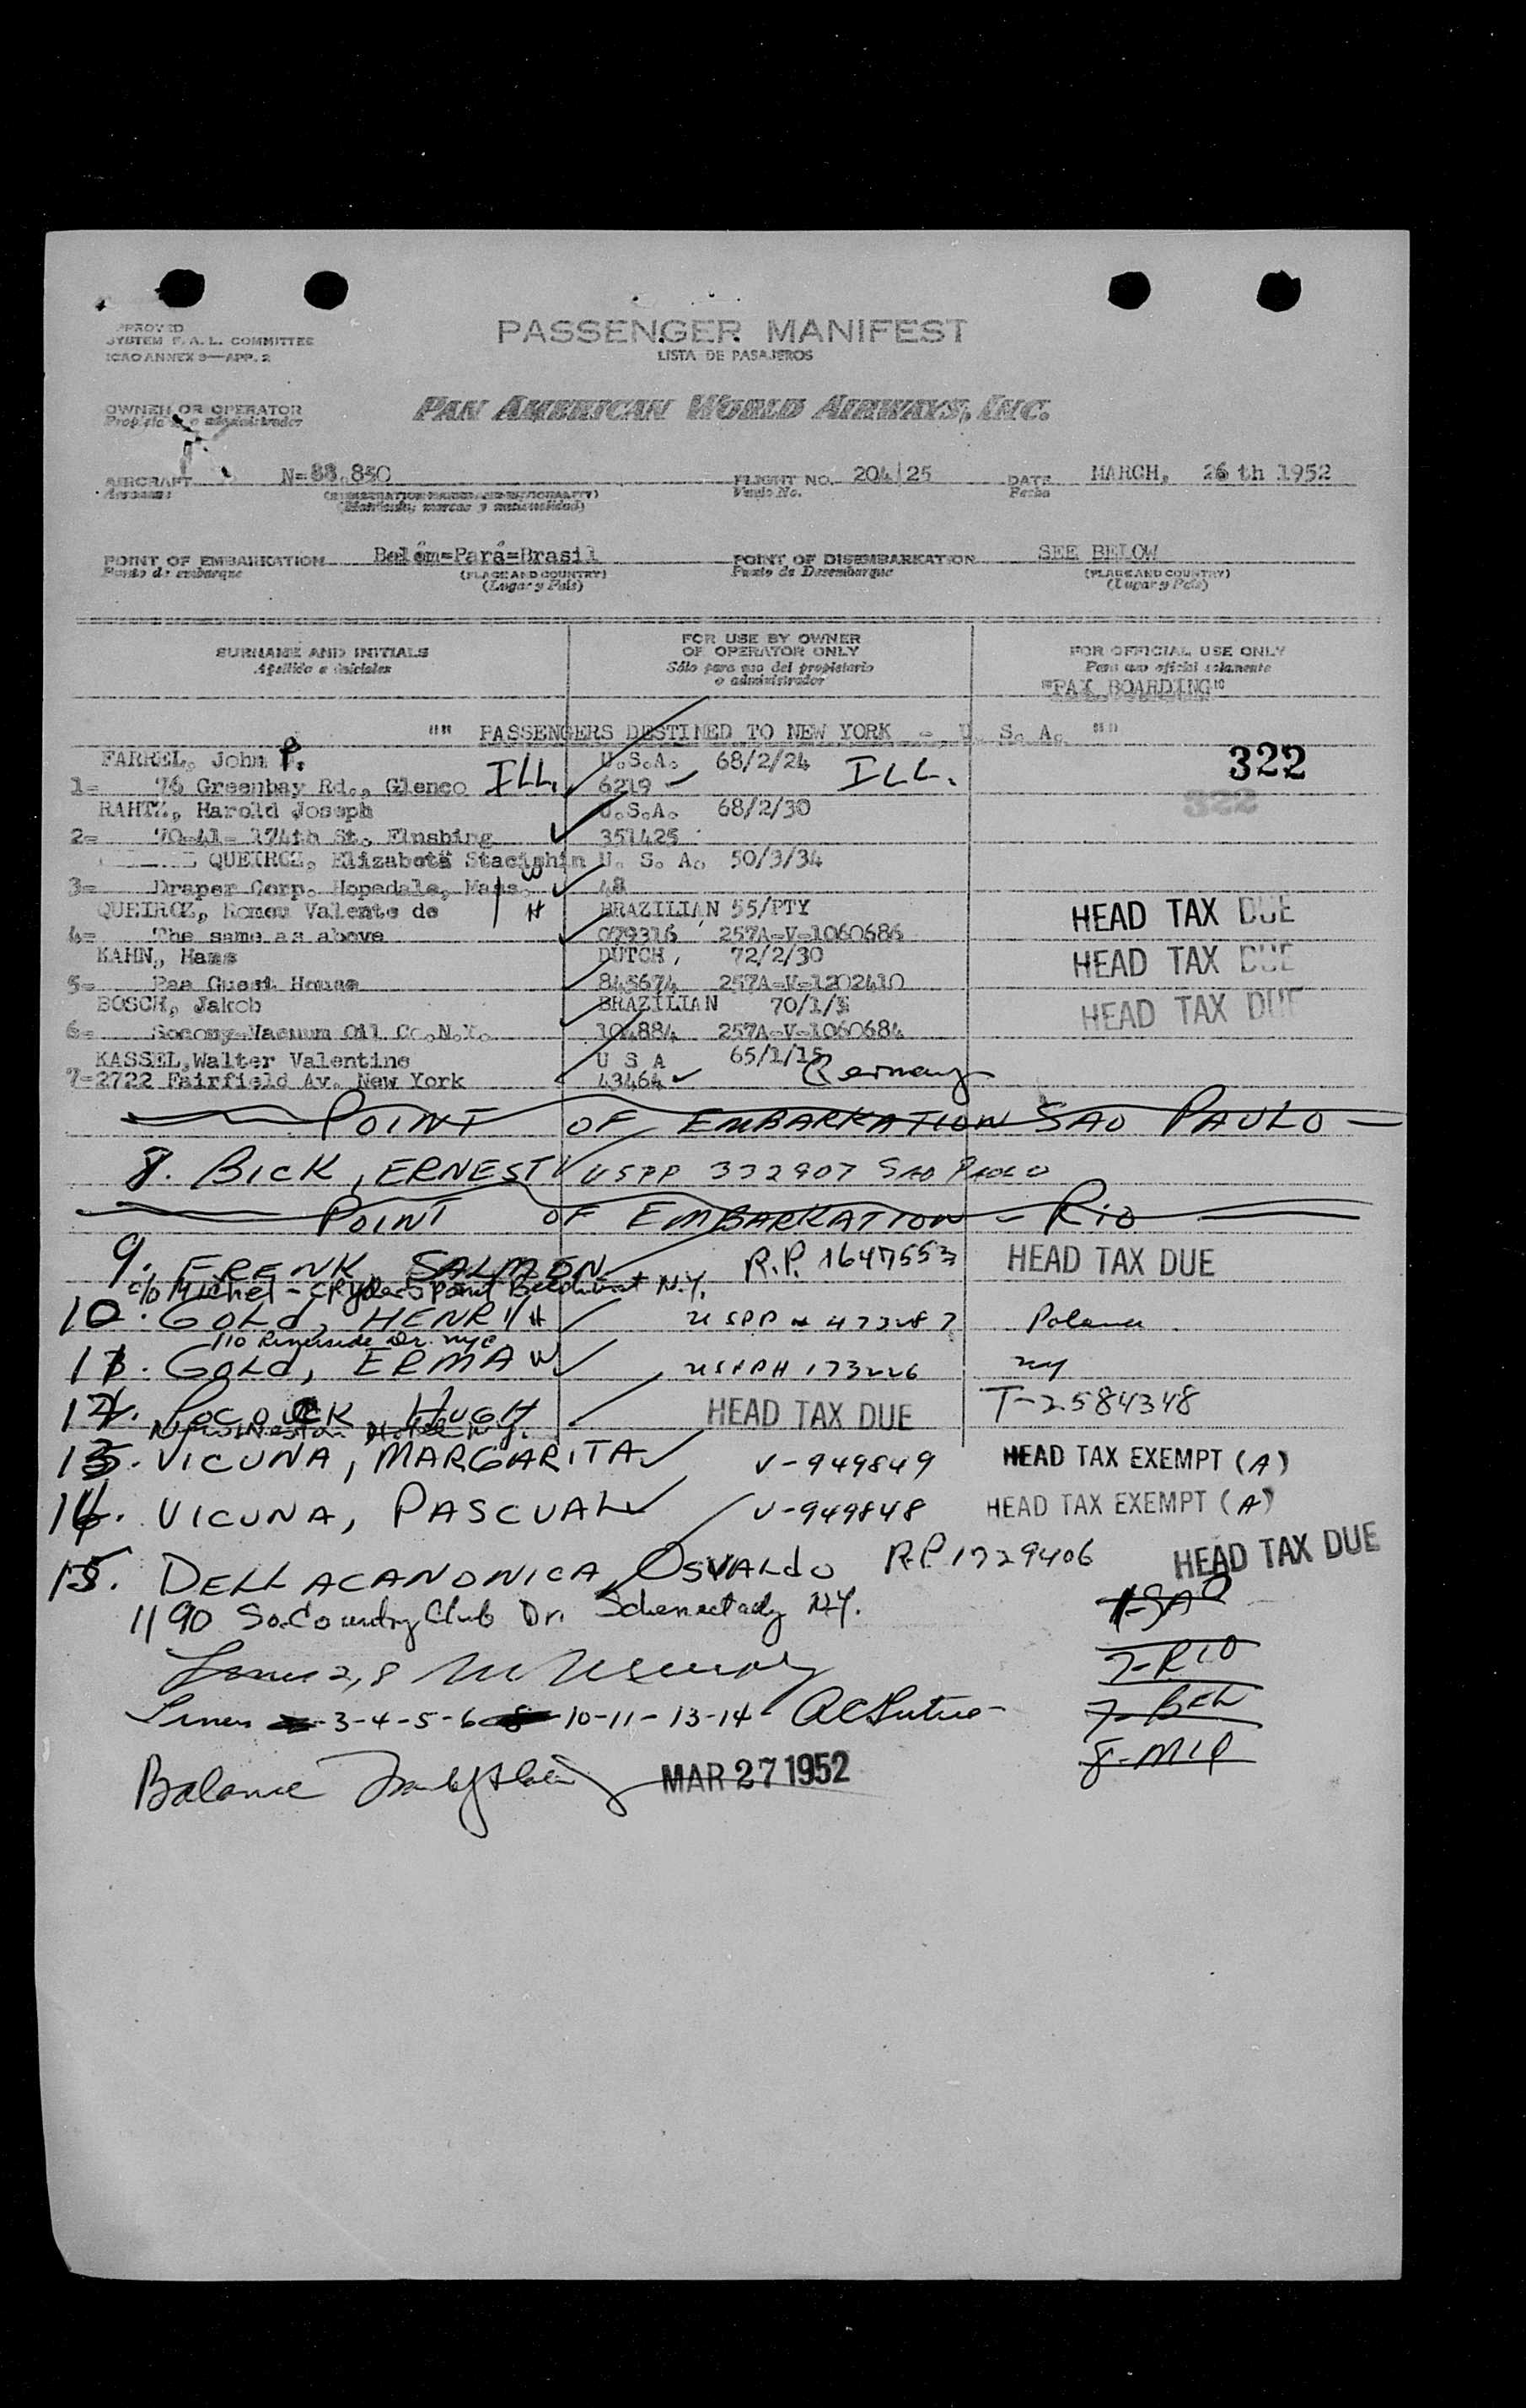 APPROVED
SYSTEM F. A. L. COMMITTEE
ICAO ANNEX 9—APP. 2
PASSENGER MANIFEST
LISTA DE PASAJEROS
OWNER OR OPERATOR
PAN AMERICAN WORLD AIRWAYS, INC.
AIRCRAFT N=88.850 FLIGHT NO. 204/25 DATE MARCH, 26 th 1952
Vuelo No. Fecha
POINT OF EMBARKATION Belém=Pará=Brasil POINT OF DISEMBARKATION SEE BELOW
Punto de embarque (PLACE AND COUNTRY) Punto de Desembarque (PLACE AND COUNTRY)
(Lugar y País) (Lugar y País)
SURNAME AND INITIALS FOR USE BY OWNER OF OPERATOR ONLY FOR OFFICIAL USE ONLY
Apellido e iniciales Sólo para uso del propietario o administrador Para uso oficial solamente
"PAX BOARDING"
"" PASSENGERS DESTINED TO NEW YORK - U. S. A. ""
FARREL, John P. U.S.A. 68/2/24 322
1= 76 Greenbay Rd., Glenco ILL. 6219 ILL.
RAHTZ, Harold Joseph U.S.A. 68/2/30 322
2= 70-41- 174th St., Flushing 351425
QUEIROZ, Elizabeth U. S. A. 50/3/34
3= Draper Corp. Hopedale, Mass. W 48
QUEIROZ, Romeu Valente de H BRAZILIAN 55/PTY HEAD TAX DUE
4= The same as above 079316 257A-V-1060686
KAHN, Hans DUTCH, 72/2/30 HEAD TAX DUE
5= Guest House 845674 257A-V-1202410
BOSCH, Jakob BRAZILIAN 70/1/ HEAD TAX DUE
6= Socony-Vacuum Oil Co.N.Y. 104884 257A-V-1060684
KASSEL, Walter Valentine U S A 65/1/15
7=2722 Fairfield Av. New York 43464 Germany
POINT OF EMBARKATION SAO PAULO
8. BICK, ERNEST USPP 332907 SAO PAOLO
POINT OF EMBARKATION - RIO
9. FRENK SALMON R.P. 1647553 HEAD TAX DUE
c/o Michel - Cryders Point Beechhurst N.Y.
10. GOLD, HENRY H USPP # 473287 Poland
110 Riverside Dr. NYC
11. GOLD, ERMA W USPP# 173226 NY
12. POCOCK HUGH HEAD TAX DUE T-2584348
New Weston Hotel N.Y.
13. VICUNA, MARGARITA V-949849 HEAD TAX EXEMPT (A)
14. VICUNA, PASCUAL V-949848 HEAD TAX EXEMPT (A)
15. DELLACANONICA, OSVALdO R.P. 1729406 HEAD TAX DUE
1190 So. Country Club Dr. Schenectady N.Y.
1-SAO
Lines 2, 8
7-RIO
Lines 3-4-5-6 8 10-11-13-14
7-BEL
8-MIP
Balance MAR 27 1952